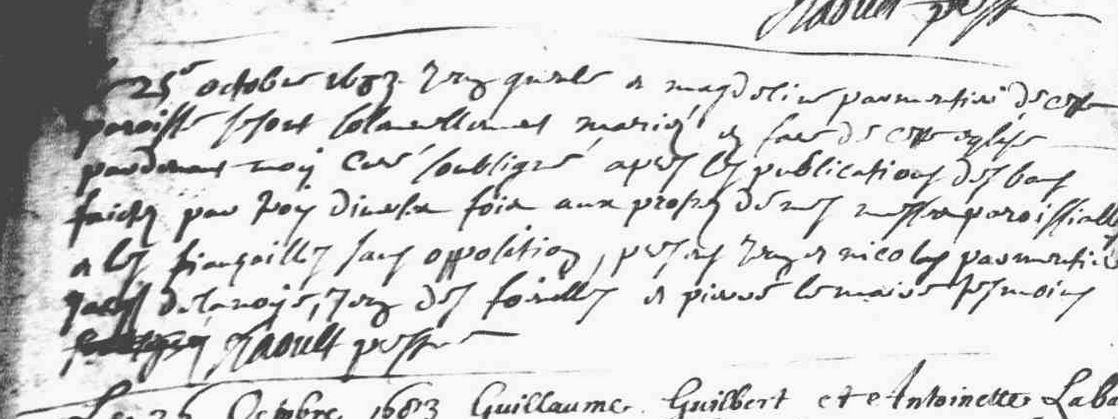 Raoult
25e octobre 1683 Jean et magdeleine parmentier de cette
paroisse se sont solanellement mariés en face de cette eglise
pardevant moy curé soubsigné apres les publications des bans
faictes par trois diverses fois aux prosnes de nos messes paroissialles
et les fiançailles sans opposition, presens et nicolas parmentier
delanoye, Jean des foireilles et pierre lemaire tesmoins
Raoult
Les 26 Octobre 1683 Guillaume Guilbert et Antoinette Lab